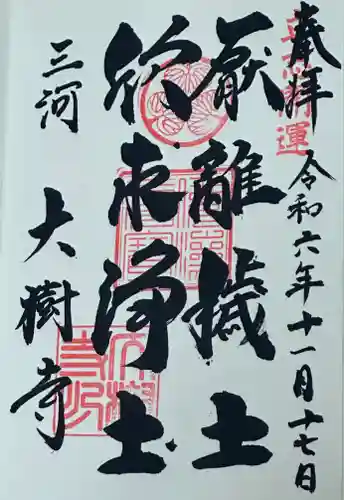 奉拝 令和六年十一月十七日
開運
厭離穢土
欣求浄土
三河 大樹寺